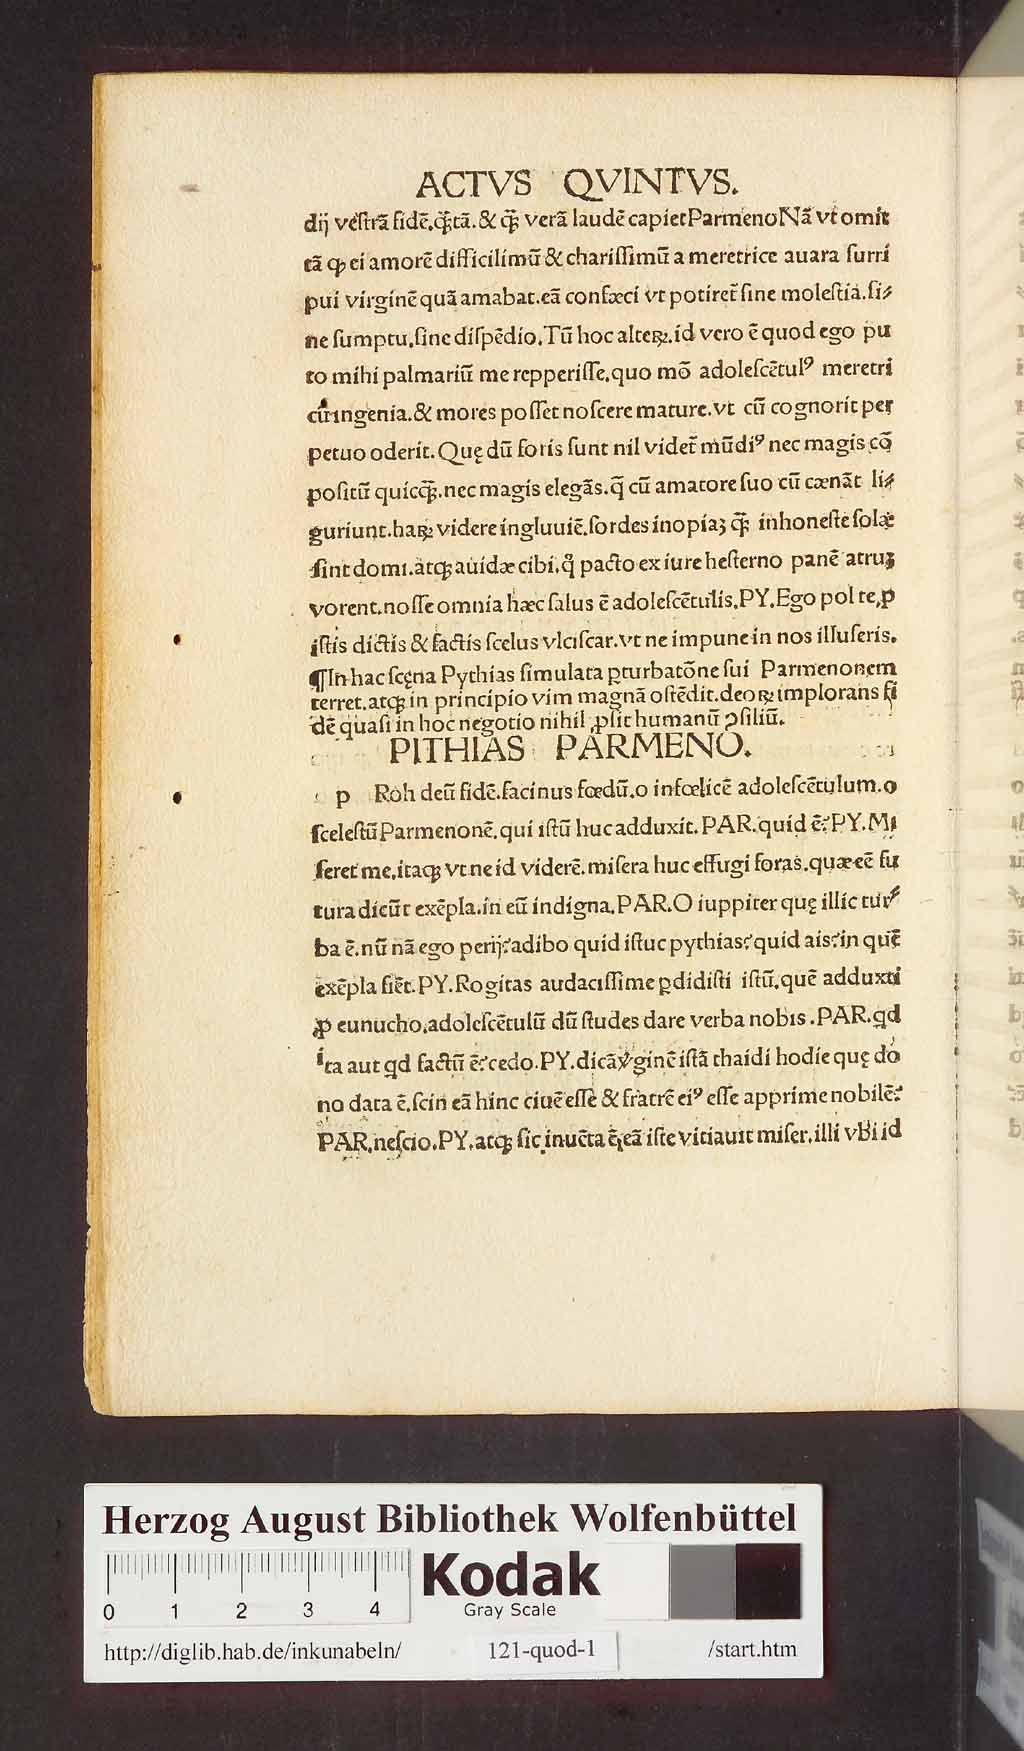 ACTVS QVINTVS.
dij vestrā fidē.q̄tā.& q̄ꝫ verā laudē capiet Parmeno Nā vt omit
tā ꝙ ei amorē difficilimū & chariſſimū a meretrice auara ſurri
pui virginē quā amabat.eā confæci vt potiret̄ ſine moleſtia.ſi⸗
ne ſumptu.ſine diſpēdio.Tū hoc alteꝝ.id vero ē quod ego pu
to mihi palmariū me repperiſſe.quo mō adoleſcētulꝰ meretri
cū ingenia.& mores poſſet noſcere mature.vt cū cognorit per
petuo oderit.Quę dū foris ſunt nil videt̄ mūdiꝰ nec magis cō
poſitū quicq̄ꝫ.nec magis elegās.q̄ cū amatore ſuo cū cænāt li⸗
guriunt.haꝝ videre ingluuiē.ſordes inopiaꝫ q̄ꝫ inhoneſte ſolæ
ſint domi.atqꝫ auidæ cibi.qͦ pacto ex iure heſterno panē atruꝫ
vorent.noſſe omnia hæc ſalus ē adoleſcētulis.PY.Ego pol te.ꝓ
iſtis dictis & factis ſcelus vlciſcar.vt ne impune in nos illuſeris.
¶In hac ſcęna Pythias ſimulata ꝑturbatōne ſui Parmenonem
terret.atqꝫ in principio vim magnā oſtēdit.deoꝝ implorans fi
dē quaſi in hoc negotio nihil ꝓſit humanū ꝯſiliū.
PITHIAS PARMENO.
p Roh deū fidē.facinus fœdū.o infœlicē adoleſcētulum.o
ſceleſtū Parmenonē.qui iſtū huc adduxit.PAR.quid ē?PY.Mi
ſeret me.itaqꝫ vt ne id viderē.miſera huc effugi foras.quæ eē fu
tura dicūt exēpla.in eū indigna.PAR.O iuppiter quę illic tur⸗
ba ē.nū nā ego perij?adibo quid iſtuc pythias?quid ais?in quē
exēpla fiēt.PY.Rogitas audaciſſime ꝑdidiſti iſtū.quē adduxti
ꝓ eunucho.adoleſcētulū dū ſtudes dare verba nobis.PAR.qd
ita aut qd factū ē?cedo.PY.dicā v̓ginē iſtā thaidi hodie quę do
no data ē.ſcin eā hinc ciuē eſſe & fratrē eiꝰ eſſe apprime nobilē?
PAR.neſcio.PY.atqꝫ ſic inuēta ē.eā iſte vitiauit miſer.illi vbi id
Herzog August Bibliothek Wolfenbüttel
0 1 2 3 4
Kodak
Gray Scale
http://diglib.hab.de/inkunabeln/ 121-quod-1 /start.htm